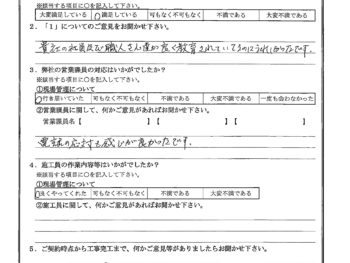 ※該当する項目に○を記入して下さい。
大変満足している 満足している 可もなく不可もなく 不満である 大変不満である
2．「1」についてのご意見をお聞かせ下さい。
貴社の社員さんも職人さん達が良く教育されていてきもちうれしかったです。
3．弊社の営業議員の対応はいかがでしたか？
※該当する項目に○を記入して下さい。
①現場管理について
行き届いていた 可もなく不可もなく 不満である 大変不満である 一度も会わなかった
②営業議員に関して、何かご意見があればお聞かせ下さい。
営業議員名【 】【 】【 】
電話の応対も感じが良かったです。
4．施工員の作業内容等はいかがでしたか？
※該当する項目に○を記入して下さい。
①現場管理について
良くやってくれた 可もなく不可もなく 不満である 大変不満である
②施工員に関して、何かご意見があればお聞かせ下さい。
5．ご契約時点から工事完工まで、何かご意見等がありましたらお聞かせ下さい。